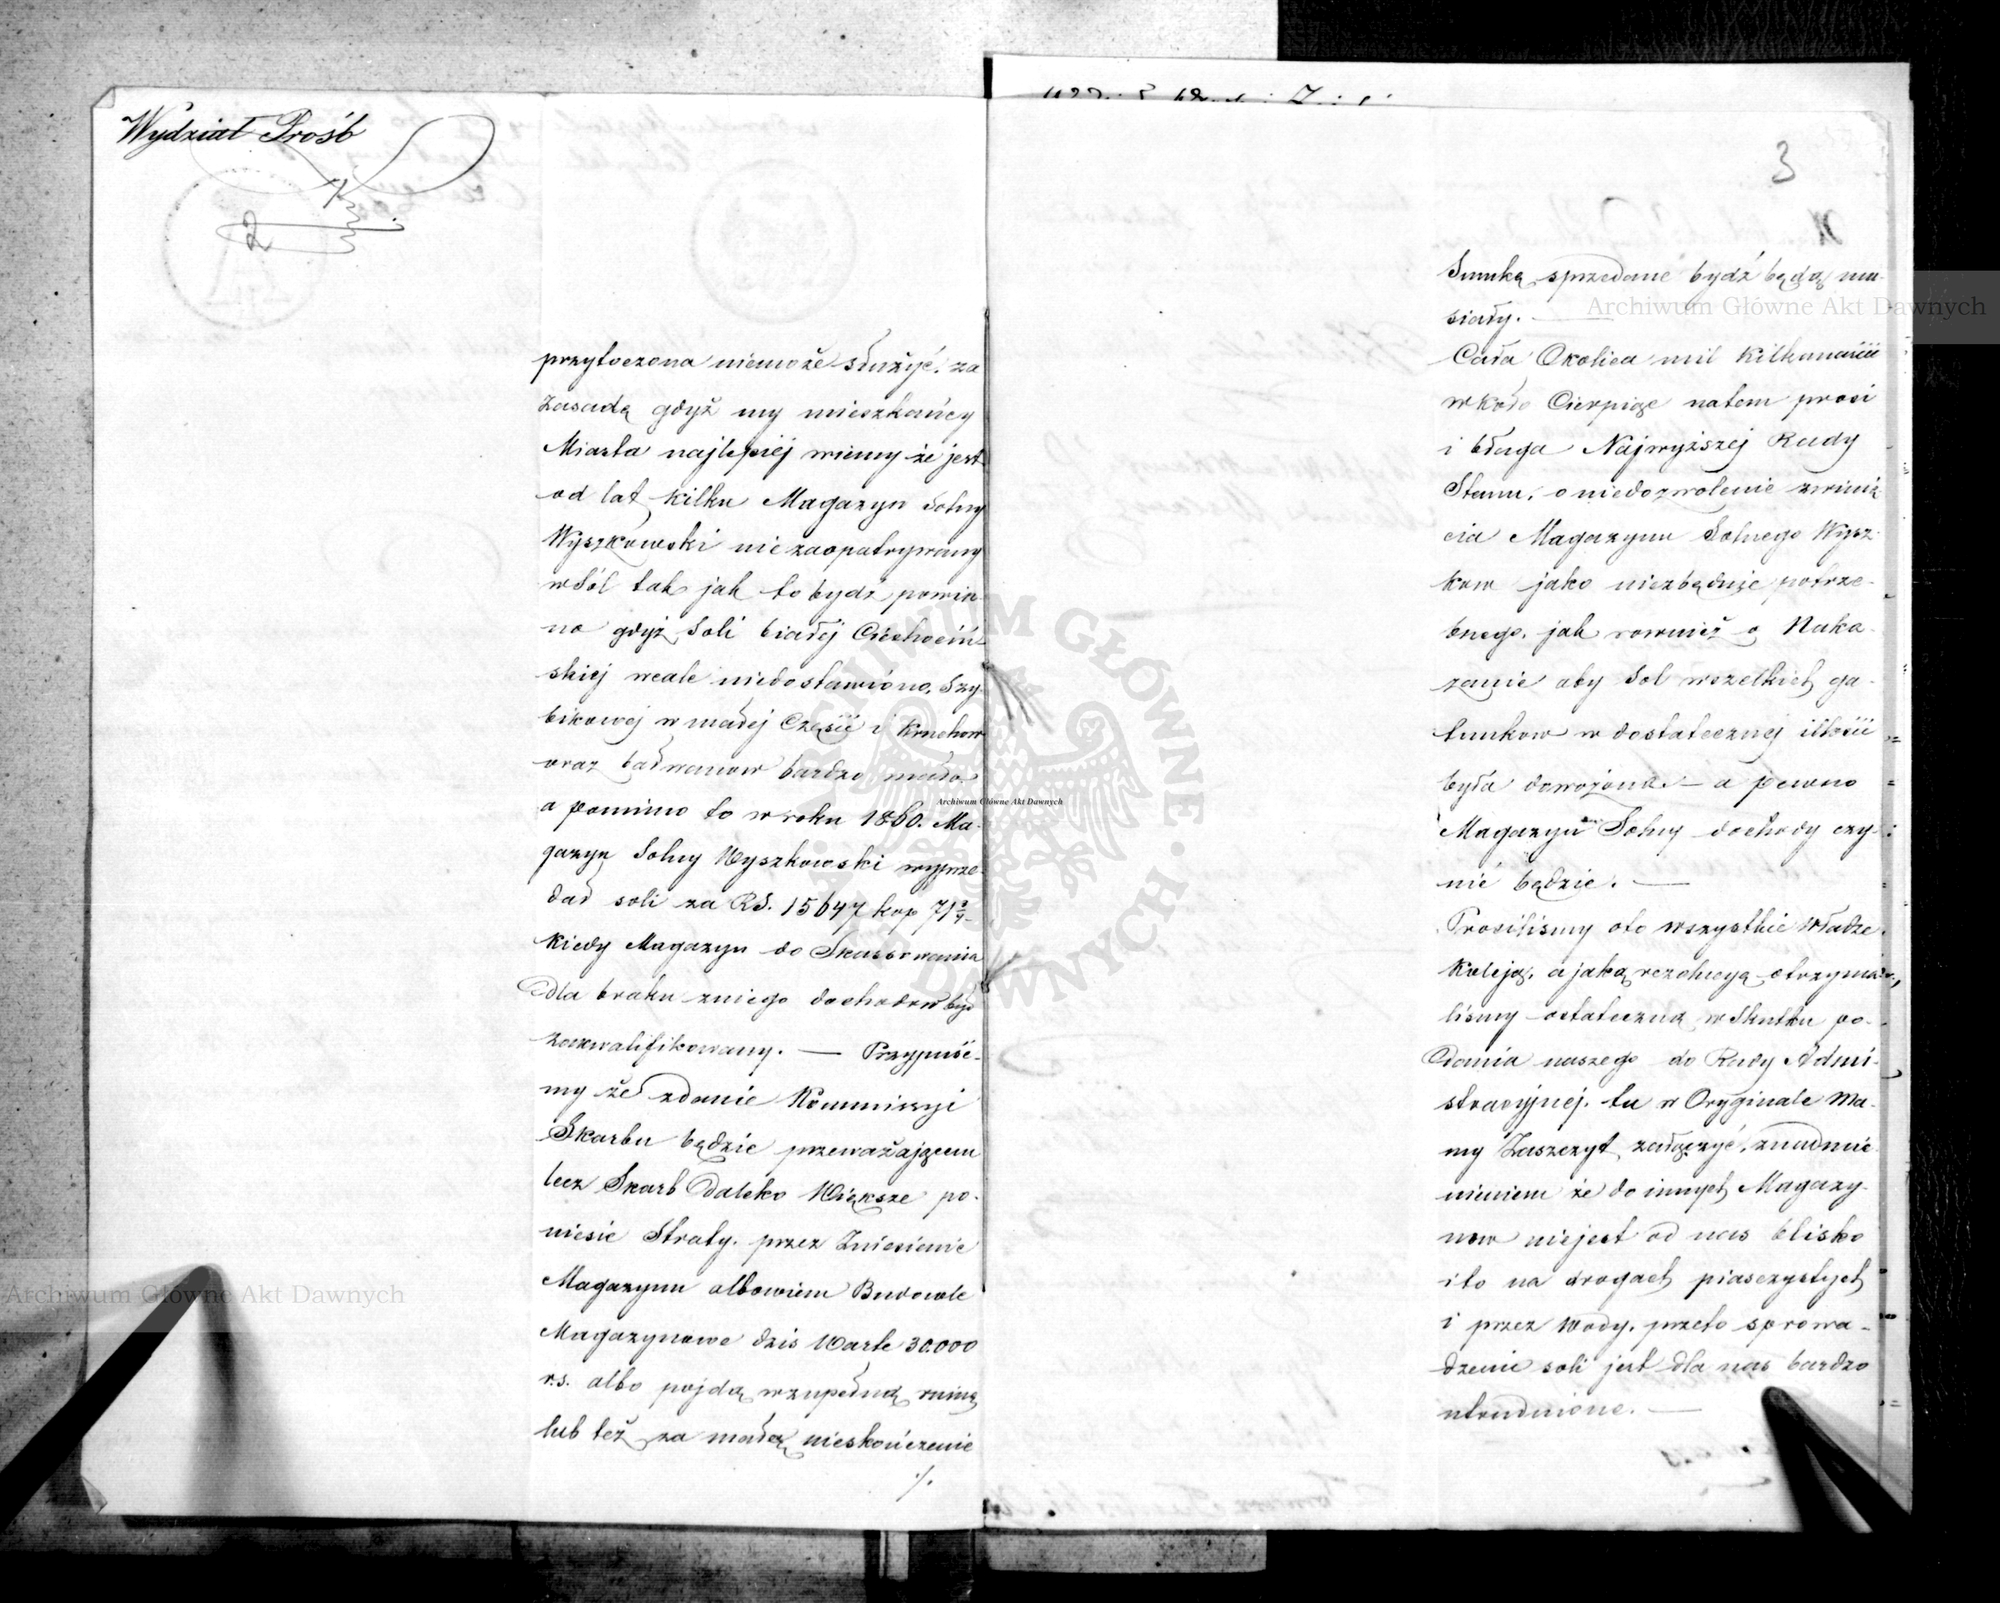 Wydział Prośb
2
przytoczona niemoże służyć, za
Zasadę gdyż my mieszkańcy
Miasta najlepiéj wiemy że jest
od lat kilku Magazyn Solny
Wyszkowski nie zaopatrywany
w Sól tak jak to bydź powin-
no gdyż Soli białéj Ciechociń-
skiej wcale niedostawiono, Szy-
bikowej w małej Części i Kruchow
oraz bałwanow bardzo mało,
a pomimo to w roku 1860. Ma-
gazyn Solny Wyszkowski wyprze-
dał soli za RS. 15647 kop 71
kiedy Magazyn do Skassowania
dla braku zniego dochodow był
zakwalifikowany. — Przypuść-
my że zdanie Kommissyi
Skarbu będzie przeważającem
lecz Skarb daleko Większe po-
niesie Straty. przez Zniesienie
Magazynu albowiem Budowle
Magazynowe dziś Warte 30.000
r.s. albo pojdą wzupełną ruinę
lub też za małą nieskończenie
./.
3
Sumkę sprzedane bydź będą mu-
siały. —
Cała Okolica mil Kilkanaście
wkoło Cierpiąc natem prosi
i błaga Najwyższej Rady
Stanu, o niedozwolenie zwinię-
cia Magazynu Solnego Wysz-
kow jako niezbędnie potrze-
bnego, jak rownież o Naka-
zanie aby Sol wszelkich ga-
tunkow w dostatecznej ilości
była dowożona. — a pewno
Magazyn Solny dochody czy-
nić będzie. —
Prosiliśmy oto wszystkie Władze
Koleją, a jaką rezolucyą otrzyma-
liśmy ostateczną w Skutku po-
dania naszego do Rady Admi-
stracyjnej. tu w Oryginale Ma-
my Zaszczyt załączyć, znadmie-
nieniem że do innych Magazy-
now niejest od nas blisko
i to na drogach piasczystych
i przez Wody, przeto sprowa-
dzenie soli jest dla nas bardzo
utrudnione. —
Archiwum Główne Akt Dawnych
Archiwum Główne Akt Dawnych
Archiwum Główne Akt Dawnych
ARCHIWUM GŁÓWNE AKT DAWNYCH